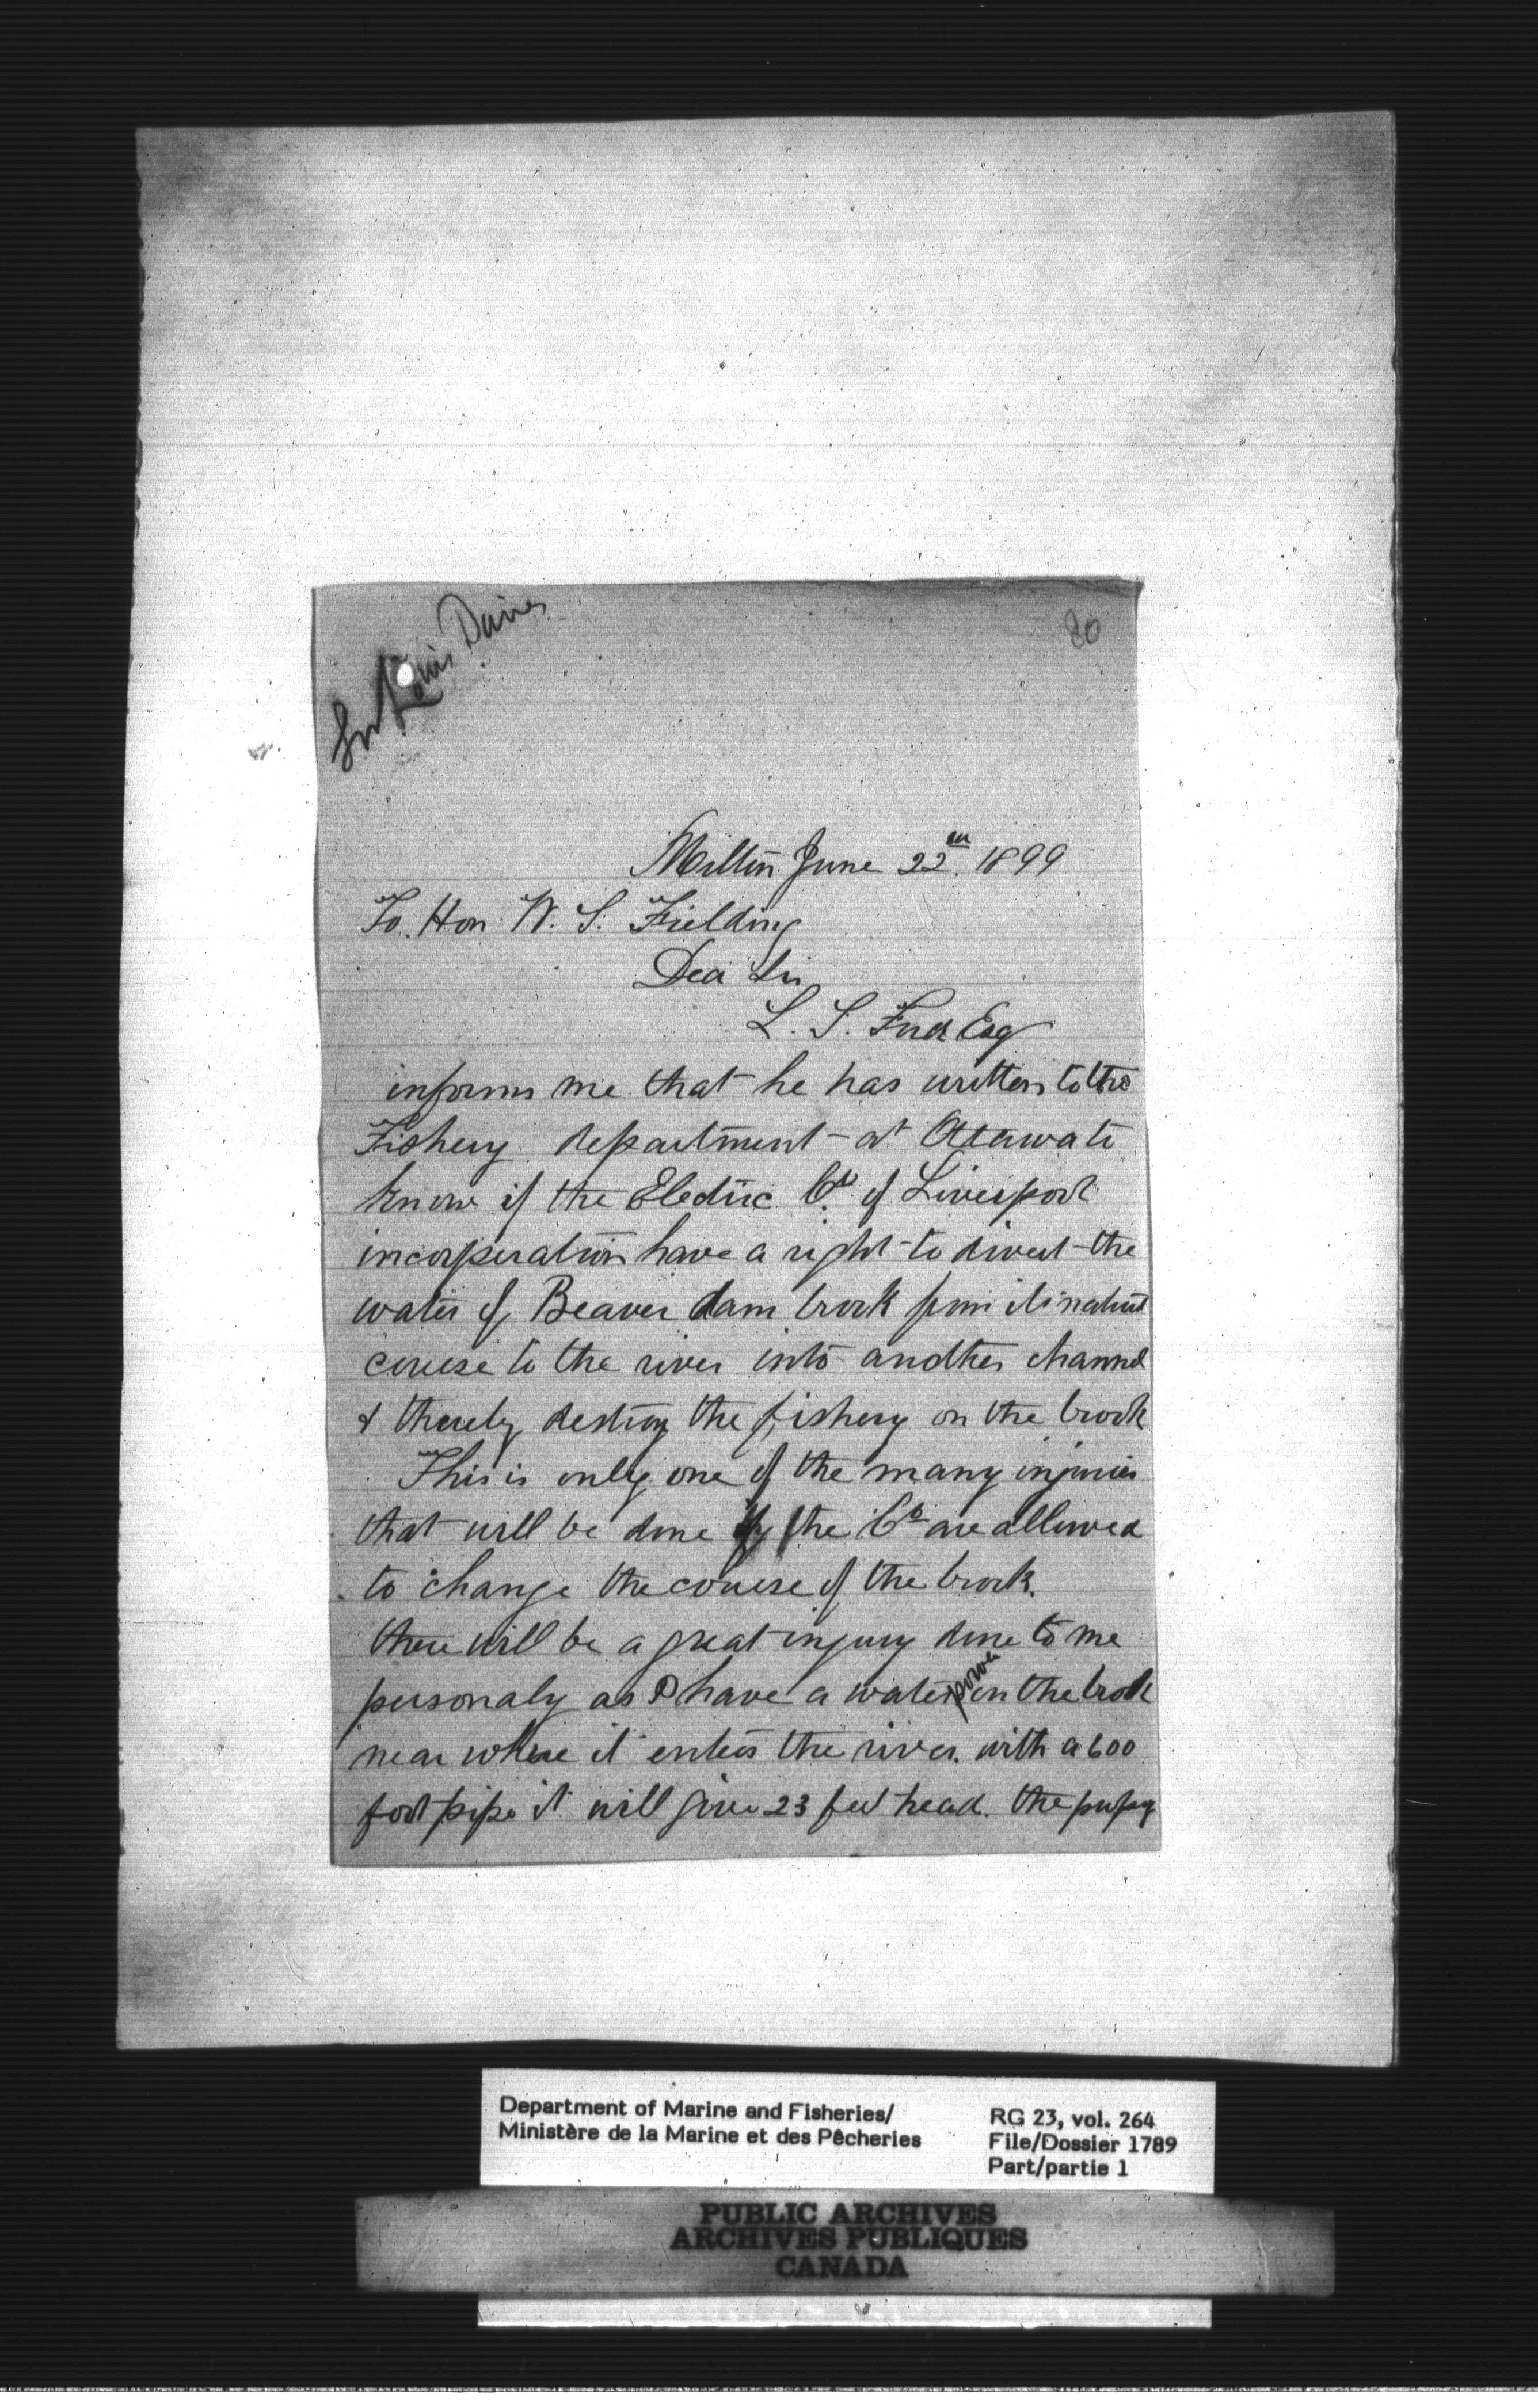 Sir Louis Davies
80
Milton June 22nd. 1899
To. Hon W. S. Fielding
Dear Sir
L. S. Ford Esq
informs me that he has written to the
Fishery department at Ottawa to
know if the Electric Co. of Liverpool
incorporation have a right to divert the
water of Beaver dam brook from its natural
course to the river into another channel
& thereby destroy the fishery on the brook
This is only one of the many injuries
that will be done if the Co are allowed
to change the course of the brook.
there will be a great injury done to me
personaly as I have a water power on the brook
near where it enters the river. with a 600
foot pipe it will give 23 feet head. the
Department of Marine and Fisheries/
Ministère de la Marine et des Pêcheries
RG 23, vol. 264
File/Dossier 1789
Part/partie 1
PUBLIC ARCHIVES
ARCHIVES PUBLIQUES
CANADA